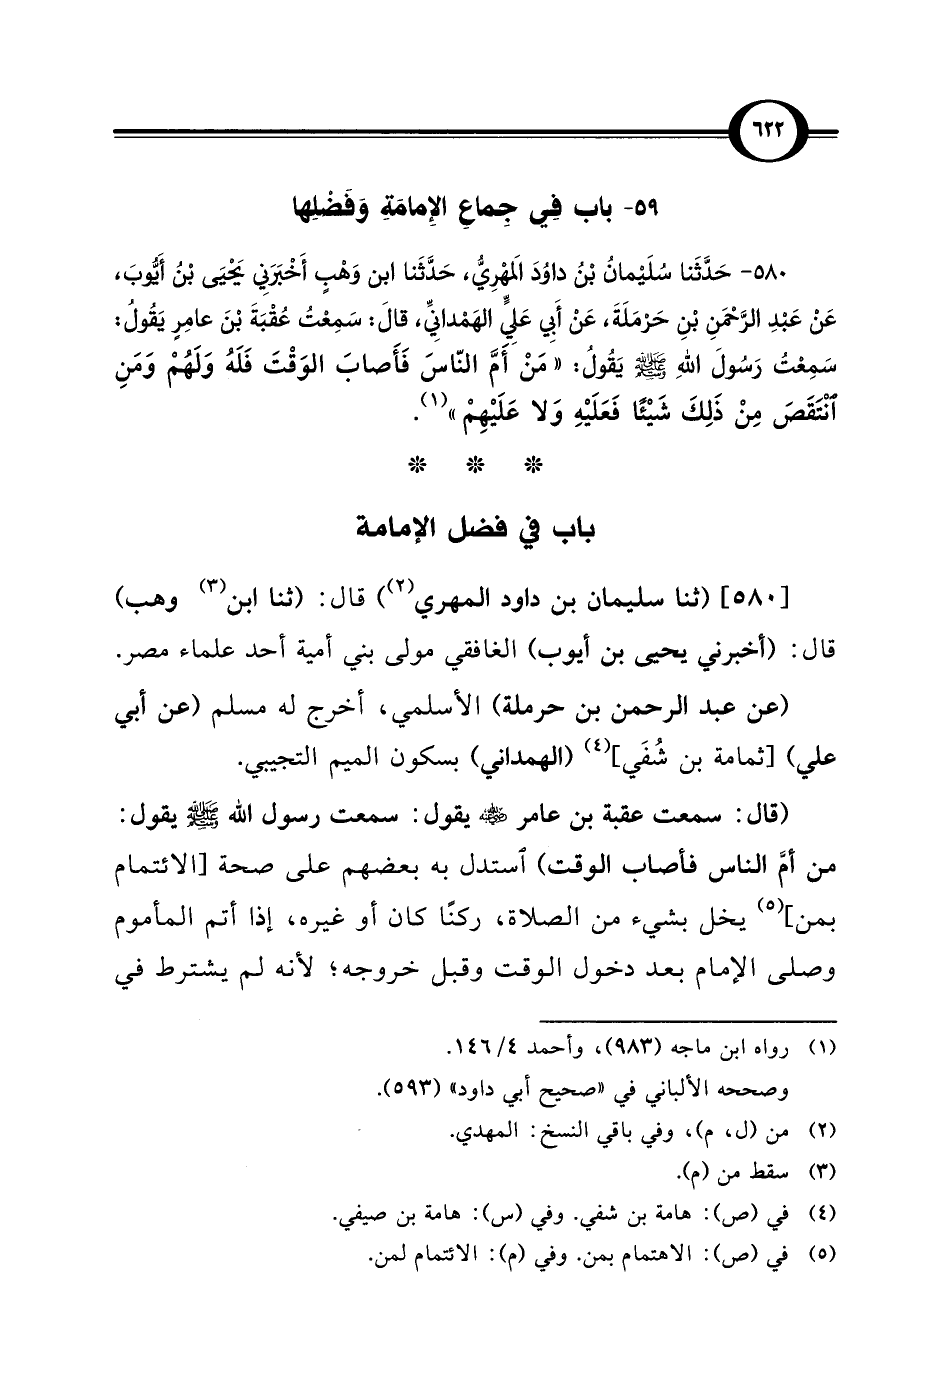 ٦٢٢
٥٩- باب فِي جِماعِ الإِمامَةِ وَفَضْلِها
٥٨٠- حَدَّثَنا سُلَيْمانُ بْنُ داوُدَ المَهْرِيُّ، حَدَّثَنا ابن وَهْبٍ أَخْبَرَنِي يَحْيَى بْنُ أَيُّوبَ،
عَنْ عَبْدِ الرَّحْمَنِ بْنِ حَرْمَلَةَ، عَنْ أَبِي عَلِيٍّ الهَمْدانِّي، قالَ: سَمِعْتُ عُقْبَةَ بْنَ عامِرٍ يَقُولُ:
سَمِعْتُ رَسُولَ اللهِ ﷺ يَقُولُ: «مَنْ أَمَّ النّاسَ فَأَصابَ الوَقْتَ فَلَهُ وَلَهُمْ وَمَنِ
ٱنْتَقَصَ مِنْ ذَلِكَ شَيْئًا فَعَلَيْهِ وَلا عَلَيْهِمْ»(١).
* * *
باب في فضل الإمامة
[٥٨٠] (ثنا سليمان بن داود المهري(٢)) قال: (ثنا ابن(٣) وهب)
قال: (أخبرني يحيى بن أيوب) الغافقي مولى بني أمية أحد علماء مصر.
(عن عبد الرحمن بن حرملة) الأسلمي، أخرج له مسلم (عن أبي
علي) [ثمامة بن شُفَي](٤) (الهمداني) بسكون الميم التجيبي.
(قال: سمعت عقبة بن عامر رضي الله عنه يقول: سمعت رسول الله ﷺ يقول:
من أمَّ الناس فأصاب الوقت) ٱستدل به بعضهم على صحة [الائتمام
بمن](٥) يخل بشيء من الصلاة، ركنًا كان أو غيره، إذا أتم المأموم
وصلى الإمام بعد دخول الوقت وقبل خروجه؛ لأنه لم يشترط في
(١) رواه ابن ماجه (٩٨٣)، وأحمد ٤/ ١٤٦.
وصححه الألباني في «صحيح أبي داود» (٥٩٣).
(٢) من (ل، م)، وفي باقي النسخ: المهدي.
(٣) سقط من (م).
(٤) في (ص): هامة بن شفي. وفي (س): هامة بن صيفي.
(٥) في (ص): الاهتمام بمن. وفي (م): الائتمام لمن.